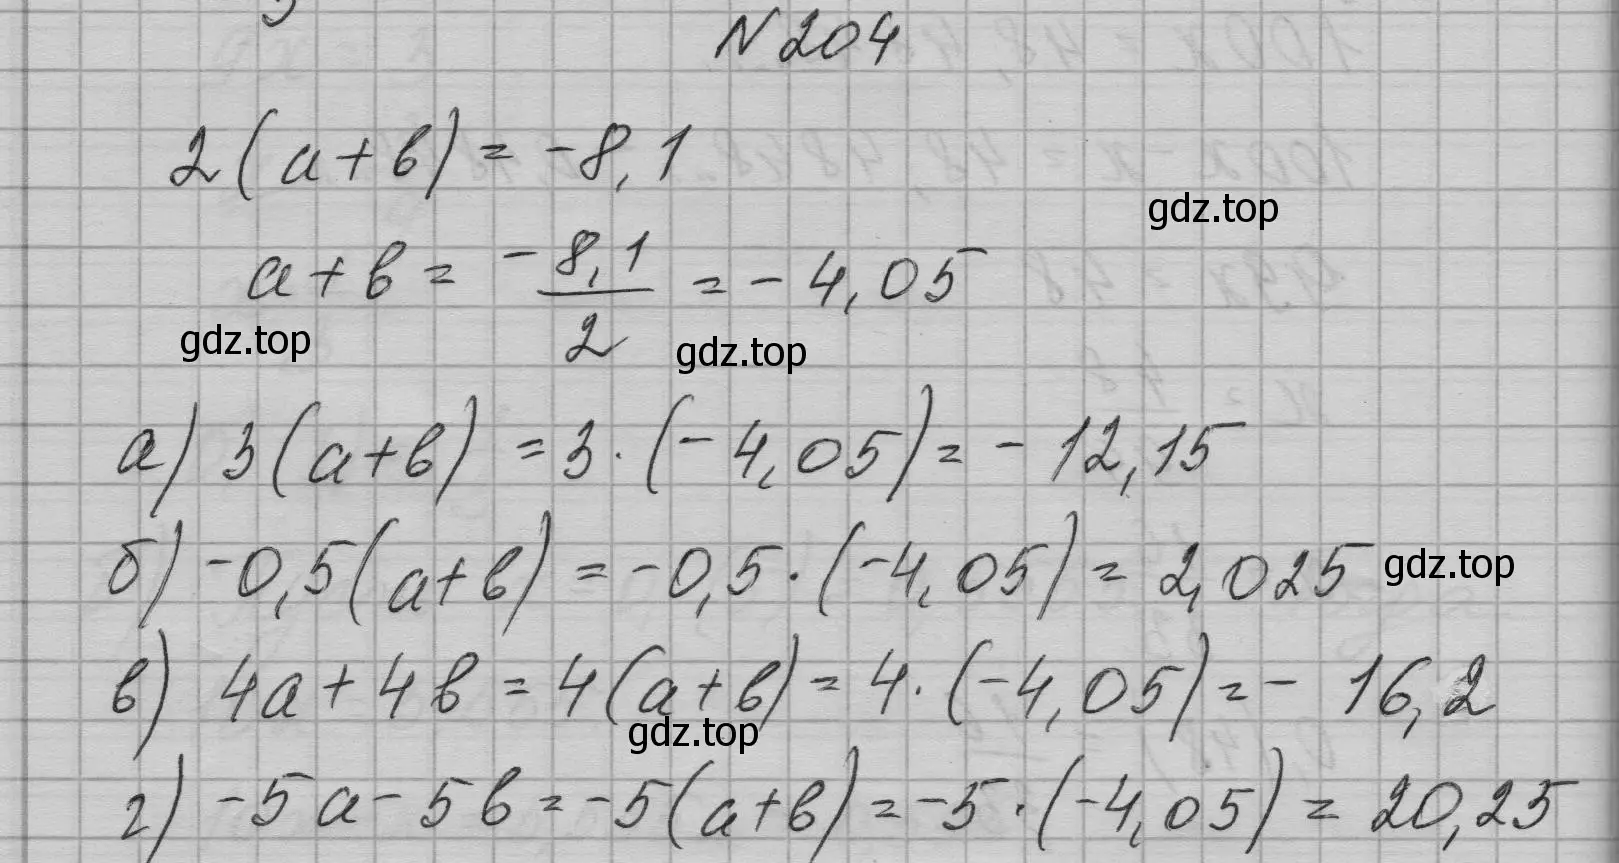 N 204
2(a+b) = -8,1
gdz.top
a+b = -8,1/2 = -4,05
gdz.top gdz.top
а) 3(a+b) = 3·(-4,05) = -12,15
б) -0,5(a+b) = -0,5·(-4,05) = 2,025 gdz.top
в) 4a+4b = 4(a+b) = 4·(-4,05) = -16,2
gdz.top
г) -5a-5b = -5(a+b) = -5·(-4,05) = 20,25